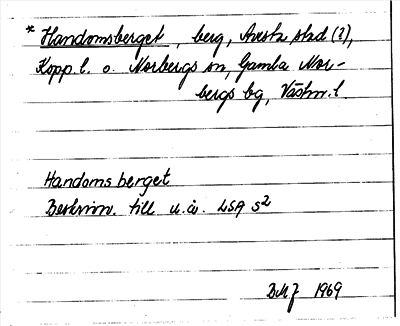 * Handomsberget, berg, Avesta stad (?),
Kopp. l. o. Norbergs sn, Gamla Nor-
bergs bg, Västm. l.
Handoms berget
Beskrivn. till u.å. LSA S2
BMJ 1969